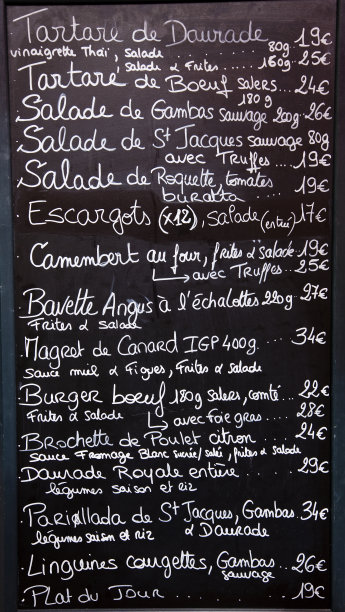 Tartare de Daurade 19€
vinaigrette Thaï, Salade ..... 80g
Salade & Frites ..... 160g 25€
Tartare de Boeuf salers... 24€
180g
Salade de Gambas sauvage 200g 26€
Salade de St Jacques sauvage 80g
avec Truffes.... 19€
Salade de Roquette, tomates 19€
burrata
Escargots (x12), salade (entrée) 17€
Camembert au four, frites & salade 19€
avec Truffes... 25€
Bavette Angus à l'échalottes 220g 27€
Frites & Salade
Magret de Canard IGP 400g .... 34€
Sauce miel & Figues, Frites & salade
Burger boeuf 180g salers, comté... 22€
Frites & salade avec foie gras.... 28€
Brochette de Poulet citron .... 24€
Sauce Fromage Blanc sucrée/salé, frites & salade
Daurade Royale entière ...... 29€
légumes saison et riz
Parillada de St Jacques, Gambas 34€
légumes saison et riz & Daurade
Linguines courgettes, Gambas ... 26€
sauvage
Plat du Jour .......... 19€